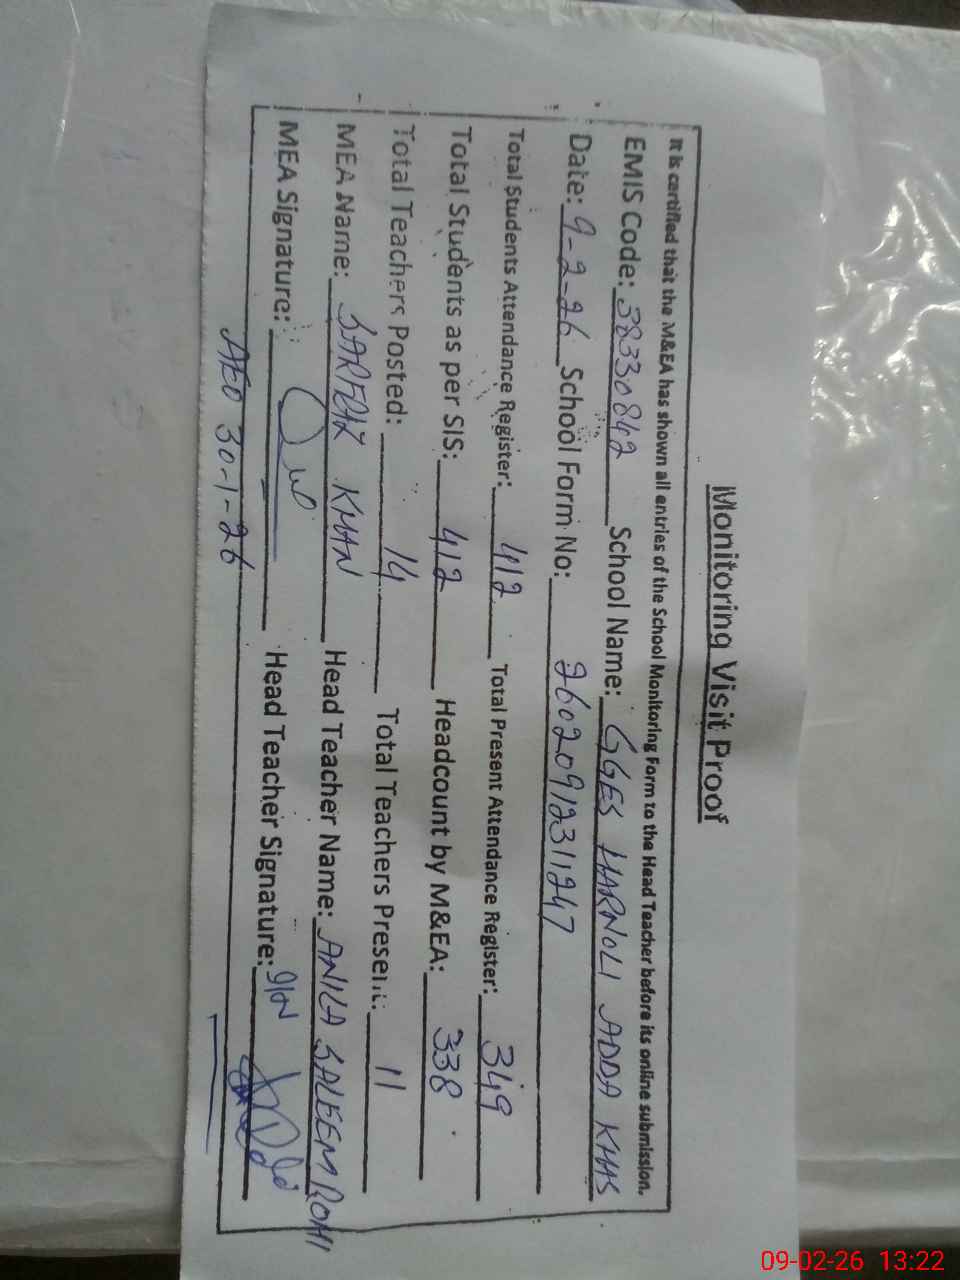 Monitoring Visit Proof
It is certified that the M&EA has shown all entries of the School Monitoring Form to the Head Teacher before its online submission.
EMIS Code: 38330842 School Name: GGES HARNOLI ADDA KHAS
Date: 9-2-26 School Form No: 26020912311247
Total Students Attendance Register: 412 Total Present Attendance Register: 349
Total Students as per SIS: 412 Headcount by M&EA: 338
Total Teachers Posted: 14 Total Teachers Present: 11
MEA Name: SARFRAZ KHAN Head Teacher Name: ANILA SALEEM ROHI
MEA Signature: Head Teacher Signature:
AEO 30-1-26
09-02-26 13:22